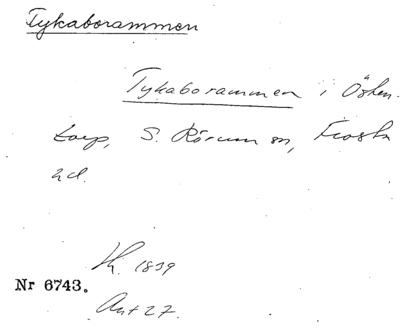 Tykaborammen
Tykaborammen i Östen-
torp, S. Rörum sn, Frosta
hd.
Kh. 1839
Nr 6743.
Ant 27.